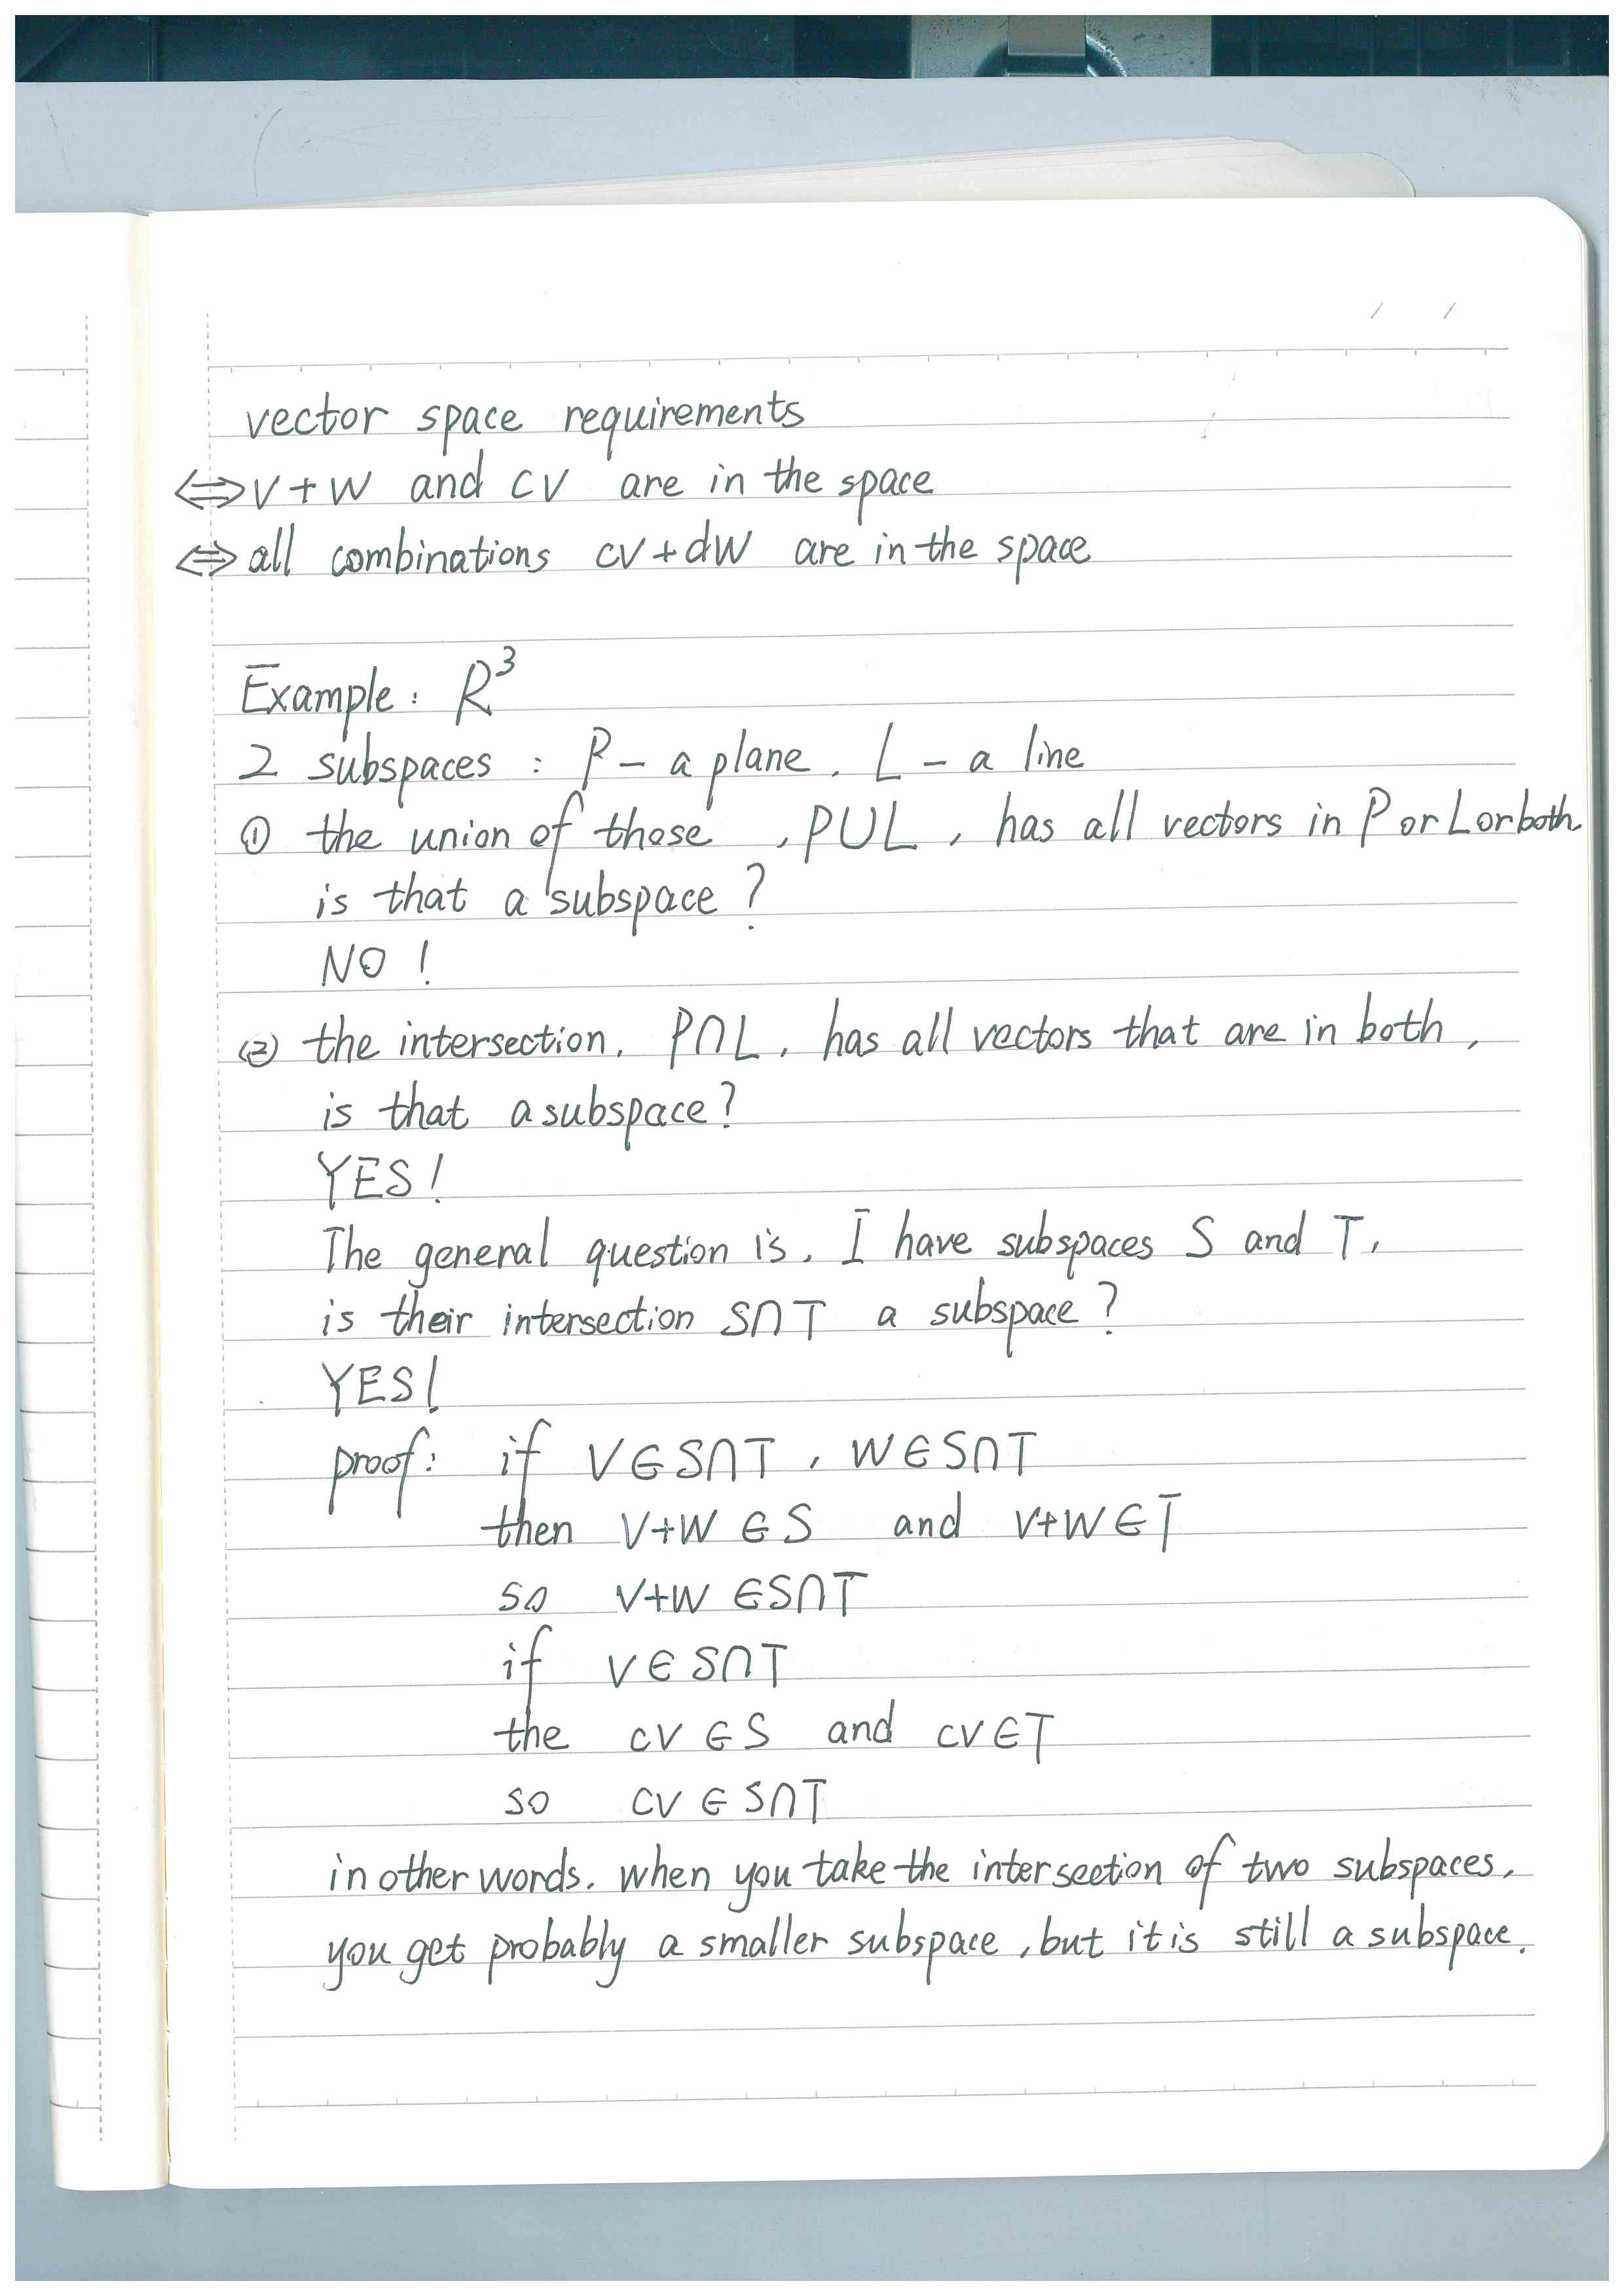 vector space requirements
⇔ v+w and cv are in the space
⇔ all combinations cv+dw are in the space
Example: R³
2 subspaces : P - a plane. L - a line
① the union of those , P∪L, has all vectors in P or L or both.
is that a subspace?
NO!
② the intersection. P∩L. has all vectors that are in both,
is that a subspace?
YES!
The general question is. I have subspaces S and T.
is their intersection S∩T a subspace?
YES!
proof: if v∈S∩T, w∈S∩T
then v+w∈S and v+w∈T
so v+w∈S∩T
if v∈S∩T
the cv∈S and cv∈T
so cv∈S∩T
in other words. when you take the intersection of two subspaces.
you get probably a smaller subspace, but it is still a subspace.